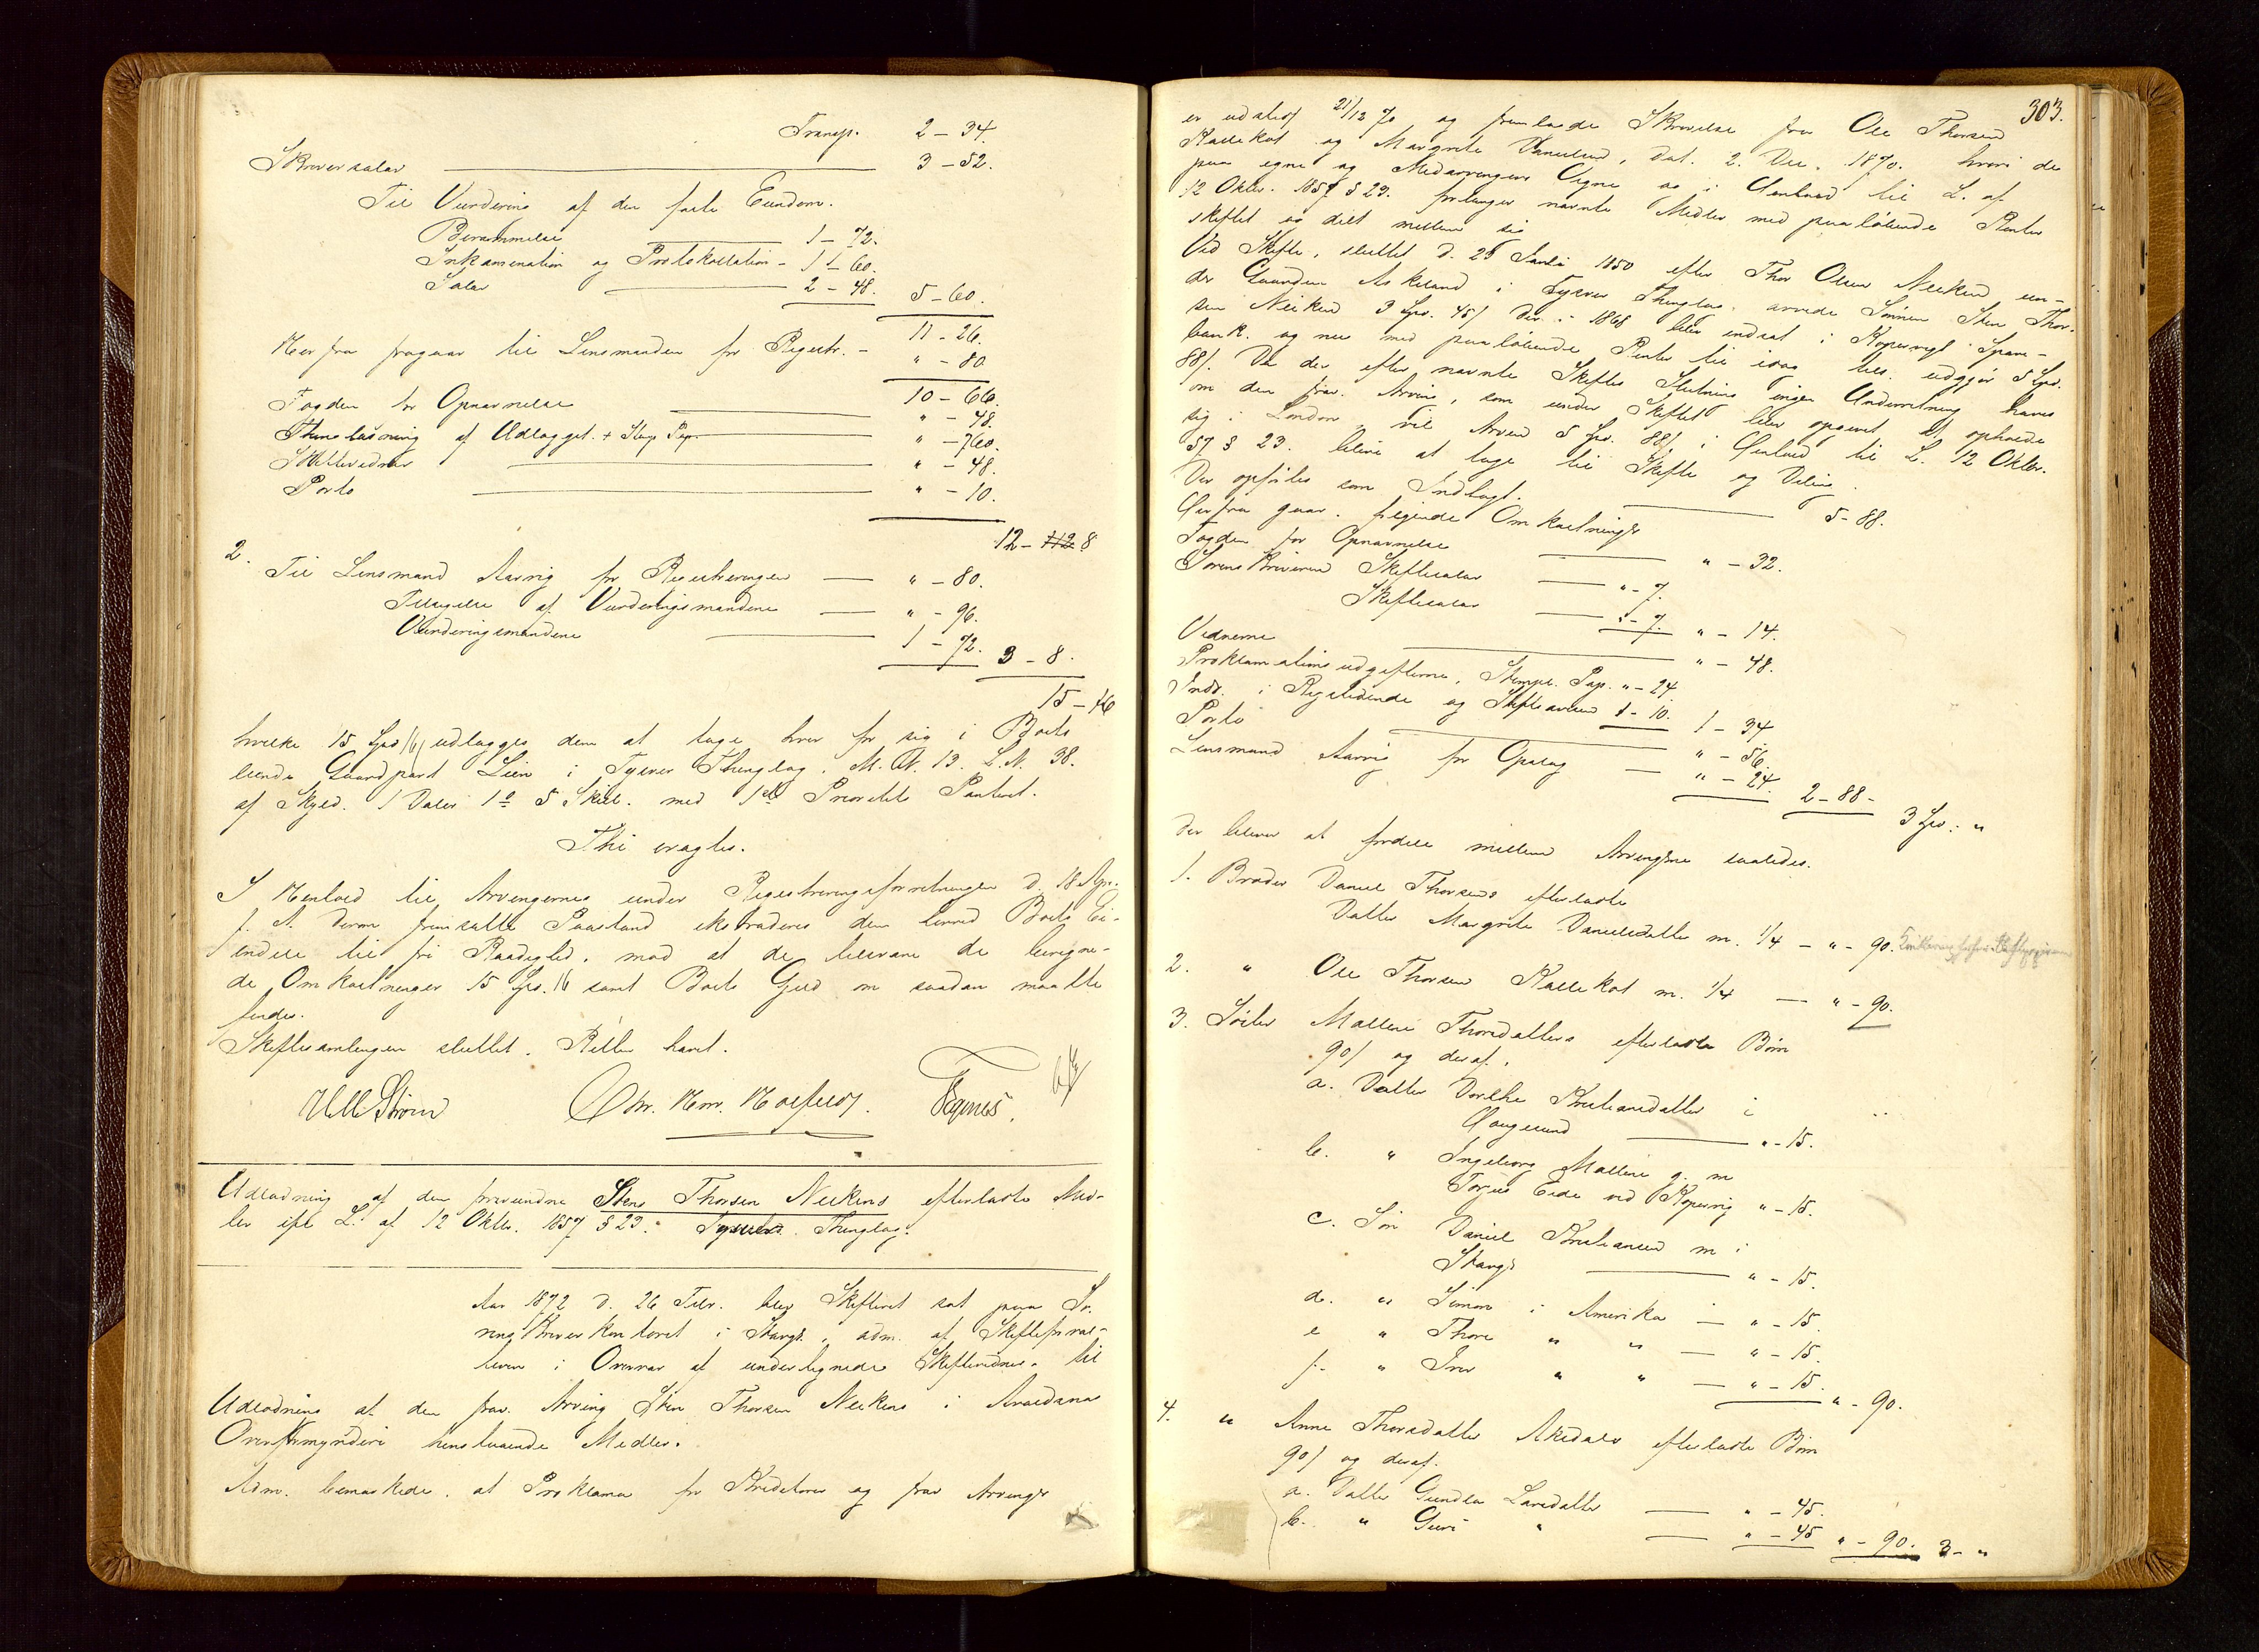 Transp. 2 - 34.
Skriversalær 3 - 52.
Til Vurdering af den faste Eiendom.
Berammelse 1 - 72.
Inkamination og Protokollation - 1 - 60.
Salær 2 - 48. 5 - 60.
11 - 26.
Herfra fragaar til Lensmanden for Registr. - " - 80
10 - 66.
Fogden for Opnævnelse " - 48.
Thinglæsning af Udlægget + Stpl. Pap. " - 60.
Skiftevidner " - 48.
Porto " - 10.
12 - 8
2. Til Lensmand Aarvig for Registreringen " - 80.
Tilsigelse af Vurderingsmændene " - 96.
Vurderingsmændene 1 - 72. 3 - 8.
15 - 16
hvilke 15 Spd 16 udlægges dem at tage hver for sig i Boets
Gaardpart Lien i Tysvær Thinglag. M. N. 13. L. N. 38.
af Skyld. 1 Daler 1 5 Skill. med 1ste Prioritets Panteret.
Thi eragtes.
I Henhold til Arvingernes under Registreringsforretningen d. 18 Apr.
f. A. derom fremsatte Paastand ekstraderes dem herved Boets Ei-
endele til fri Raadighed, mod at de tilsvare de beregne-
de Omkostninger 15 Spd. 16 samt Boets Gjæld om saadan maatte
findes.
Skiftesamlingen sluttet. Retten hævet.
Strøm Chr. Hagnes.
Udlodning af den fraværende Stens Thorsen Neikens efterladte Mid-
ler ifl. L. af 12 Oktbr. 1857 § 23. Tysvær Thinglag.
Aar 1872 d. 26 Febr. blev Skifteret sat paa So-
renskriverkontoret i Stavgr., adm. af Skifteforval-
teren i Overvær af undertegnede Skiftevidner til
Udlodning af den frav. Arving Sten Thorsen Neikens i Avaldsnæs
Overformynderi henstaaende Midler.
Adm. bemærkede, at Proklama for Kreditorer og frav. Arvinger
303.
er udstedt 21/12 70 og fremlagde Skrivelse fra Ole Thorsen
Kallekot og Margrete Danielsen, dat. 2. Dec. 1870. hvori de
paa egne og Medarvingers Vegne og i Henhold til L. af
12 Oktbr. 1857 § 23. forlanger nævnte Midler med paaløbende Renter
skiftet og delt mellem sig
Ved Skifte, sluttet d. 25 1850 efter Thor Olsen Neiken un-
der Gaarden Askeland i Tysvær Thinglag arvede Sønnen Sten Thor-
sen Neiken 3 Spd. 45/ der i 1868 blev indsat i Kopervigs Spare-
bank og nu med paaløbende Renter til idag udgjør 5 Spd.
88/. Da der efter nævnte Skiftes Slutning ingen Underretning haves
om den frav. Arving, som under Skiftet blev opgivet at opholde
sig i London, vil Arven 5 Spd. 88/ i Henhold til L. 12 Oktbr.
57 § 23. blive at tage til Skifte og Deling.
Der opføres som Indtægt. 5 - 88.
Herfra gaar følgende Omkostninger
Fogden for Opnævnelse " - 32.
Sorenskriveren Skiftesalær " - 7.
Skiftesalær " - 7. " - 14.
Vidnerne " - 48.
Proklamationsudgifterne, Stempl. Pap. " - 24
Indr. i Rigstidende og Stiftsavisen 1 - 10. 1 - 34
Porto " - 56.
Lensmand Aarvig for Opslag " - 24. 2 - 88 - 3 Spd. "
der bliver at fordele mellem Arvingerne saaledes.
1. Broder Daniel Thorsens efterladte
Datter Margrete Danielsdatter m. 1/4 - " - 90.
2. " Ole Thorsen Kallekot m. 1/4 — " - 90.
3. Søster Malene Thorsdatters efterladte Børn
90/ og deraf.
a. Datter Dorthe Kristiansdatter i
Haugesund " - 15.
b. " Ingeborg Malene g. m
Torjus Eide ved Kopervig " - 15.
c. Søn Daniel Kristiansen m i
Stavgr " - 15.
d. " Simon i Amerika — " - 15.
e " Thore " " — " - 15.
f. " Iver " " — " - 15. " - 90.
4. " Anne Thorsdatter Akedals efterladte Børn
90/ og deraf.
a. Datter Gunda Larsdatter " - 45.
b. " Guri " " - 45 " - 90. 3 - "